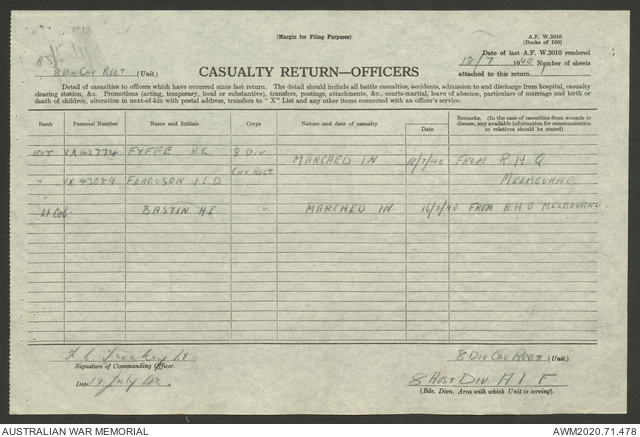 (Margin for Filing Purposes)
A.F. W.3010
(Books of 100)
8 DIV CAV REGT (Unit.)
CASUALTY RETURN—OFFICERS
Date of last A.F. W.3010 rendered
18/7 1940 Number of sheets
attached to this return 1
Detail of casualties to officers which have occurred since last return. The detail should include all battle casualties, accidents, admission to and discharge from hospital, casualty
clearing station, &c. Promotions (acting, temporary, local or substantive), transfers, postings, attachments, &c., courts-martial, leave of absence, particulars of marriage and birth or
death of children, alteration in next-of-kin with postal address, transfers to "X" List and any other items connected with an officer's service.
Rank Personal Number Name and Initials Corps Nature and date of casualty Date Remarks. (In the case of casualties from wounds or
disease, any available information for communication
to relatives should be stated)
VX42774 FYFFE H.G. 8 DIV MARCHED IN 18/7/40 FROM R.H.Q
CAV REGT MELBOURNE
" VX43089 FERGUSON J.L.D
Lt Col. BASTIN H.E " MARCHED IN 16/7/40 FROM R.H.Q MELBOURNE
Signature of Commanding Officer.
8 DIV CAV REGT (Unit.)
Date 19 July 40
8 AUST DIV A I F
(Bde. Divn. Area with which Unit is serving).
AUSTRALIAN WAR MEMORIAL
AWM2020.71.478